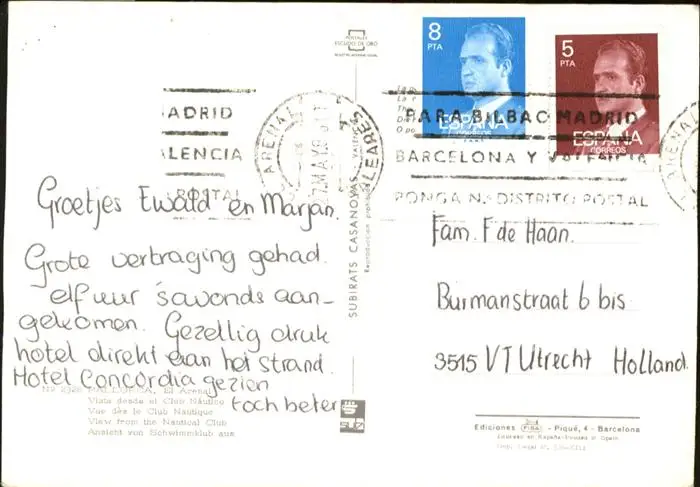 POSTALES
ESCUDO DE ORO
8
PTA
ESPAÑA
5
PTA
ESPAÑA
CORREOS
ADRID
ALENCIA
POSTAL
ARENAL
BALEARES
PARA BILBAO MADRID
BARCELONA Y VALENCIA
PONGA N.º DISTRITO POSTAL
SUBIRATS CASANOVAS VALENCIA
Reproducción prohibida
Groetjes Ewald en Marjan.
Grote vertraging gehad.
elf uur 'savonds aan-
gekomen. Gezellig druk
hotel direkt aan het strand.
Hotel Concordia gezien
toch beter
MALLORCA. El Arenal
Vista desde el Club Náutico
Vue dès le Club Nautique
View from the Nautical Club
Ansicht von Schwimmklub aus
Fam. F de Haan.
Burmanstraat 6 bis
3515 VT Utrecht Holland.
Ediciones FISA - Piqué, 4 - Barcelona
Impreso en España-Printed in Spain